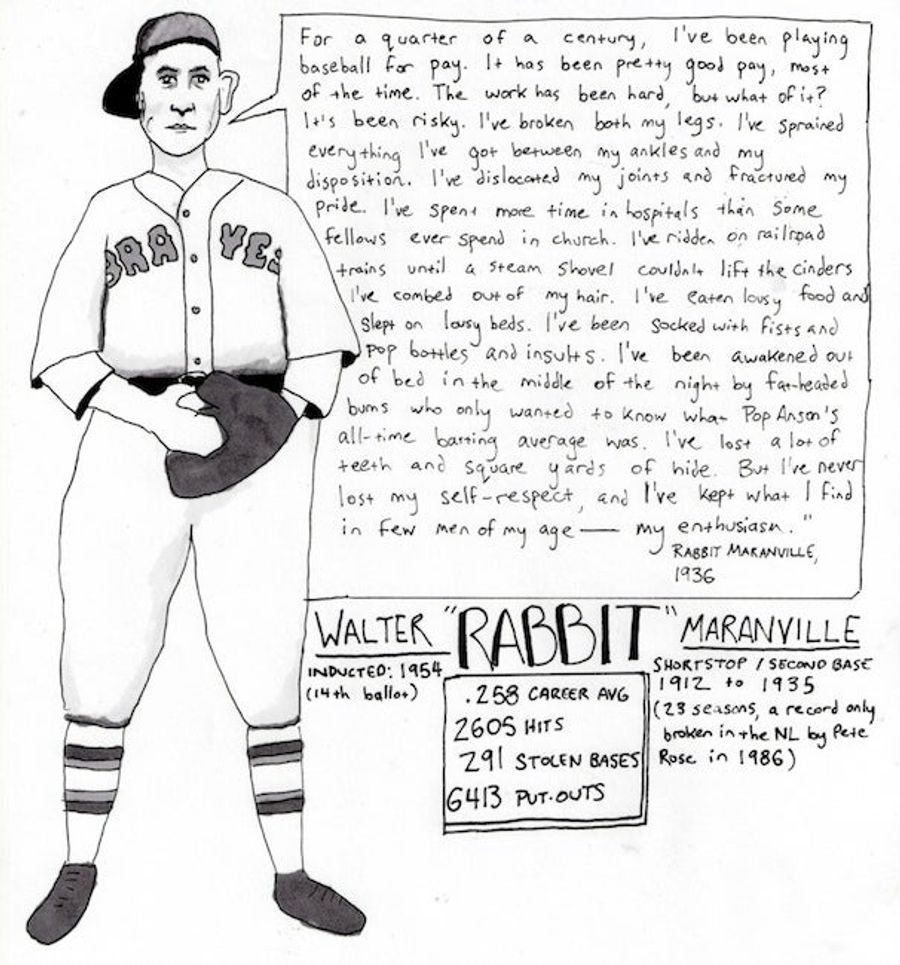 For a quarter of a century, I've been playing
baseball for pay. It has been pretty good pay, most
of the time. The work has been hard, but what of it?
It's been risky. I've broken both my legs. I've sprained
everything I've got between my ankles and my
disposition. I've dislocated my joints and fractured my
pride. I've spent more time in hospitals than some
fellows ever spend in church. I've ridden on railroad
trains until a steam shovel couldn't lift the cinders
I've combed out of my hair. I've eaten lousy food and
slept on lousy beds. I've been socked with fists and
pop bottles and insults. I've been awakened out
of bed in the middle of the night by fat-headed
bums who only wanted to know what Pop Anson's
all-time batting average was. I've lost a lot of
teeth and square yards of hide. But I've never
lost my self-respect, and I've kept what I find
in few men of my age — my enthusiasm."
RABBIT MARANVILLE,
1936
BRAVES
WALTER "RABBIT" MARANVILLE
INDUCTED: 1954
(14th ballot)
.258 CAREER AVG
2605 HITS
291 STOLEN BASES
6413 PUT-OUTS
SHORTSTOP / SECOND BASE
1912 to 1935
(23 seasons, a record only
broken in the NL by Pete
Rose in 1986)